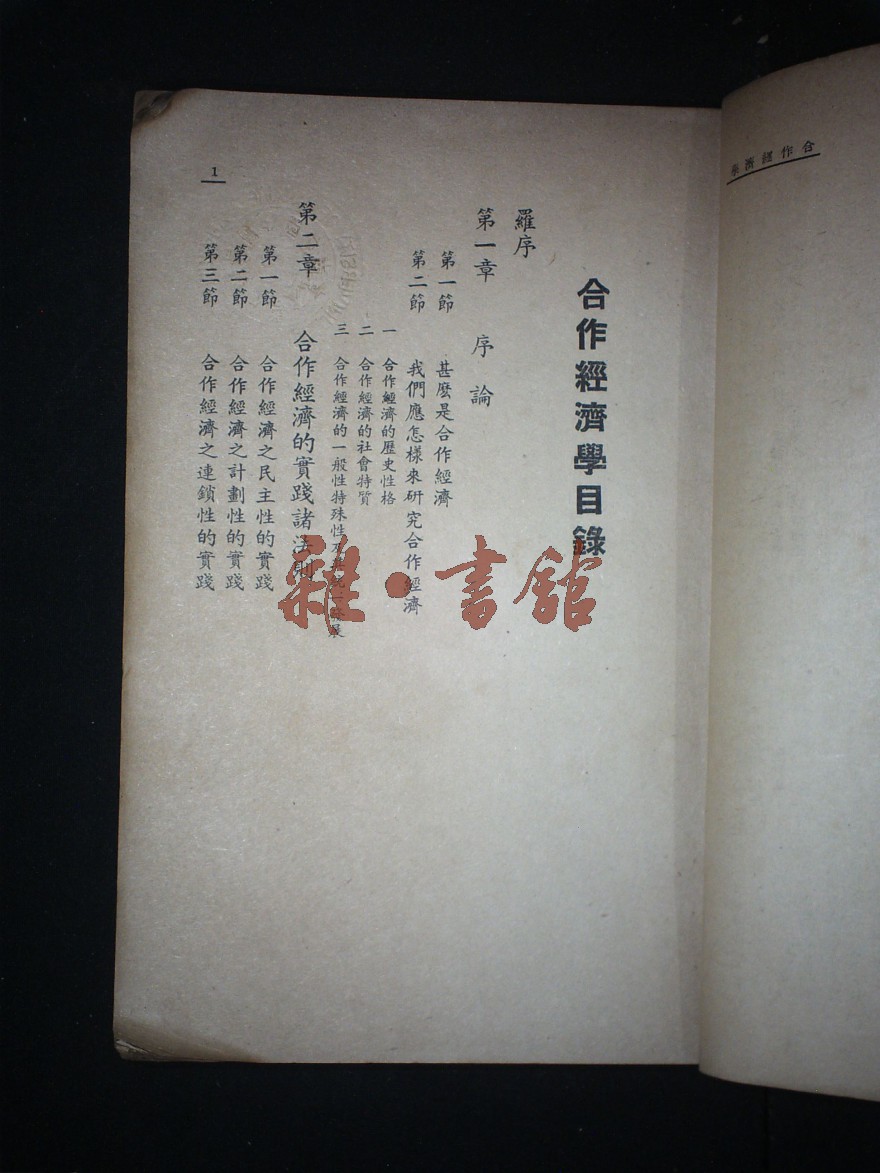 合作經濟學
合作經濟學目錄
羅序
第一章 序論
第一節 甚麼是合作經濟
第二節 我們應怎樣來研究合作經濟
一 合作經濟的歷史性格
二 合作經濟的社會特質
三 合作經濟的一般性特殊性及其統一發展
第二章 合作經濟的實踐諸法則
第一節 合作經濟之民主性的實踐
第二節 合作經濟之計劃性的實踐
第三節 合作經濟之連鎖性的實踐
1
雜·書館